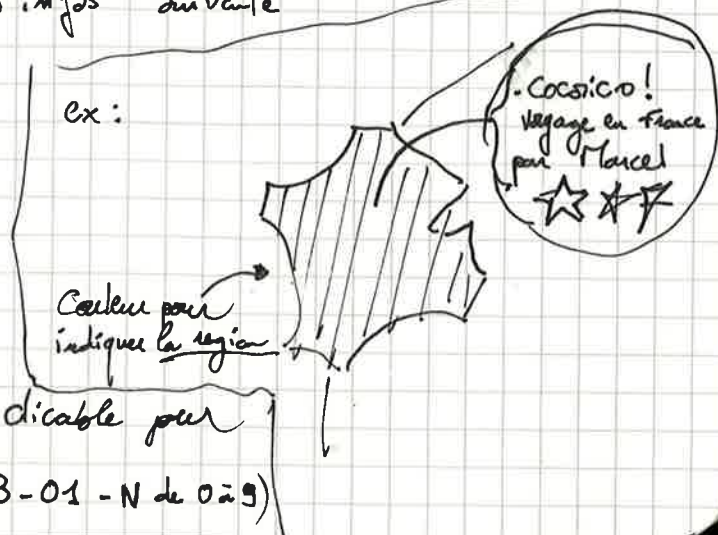 infos suivante
ex :
- Cocorico !
voyage en France
par Marcel
Couleur pour
indiquer la region
dicable pour
3-01 - N de 0 à 9)